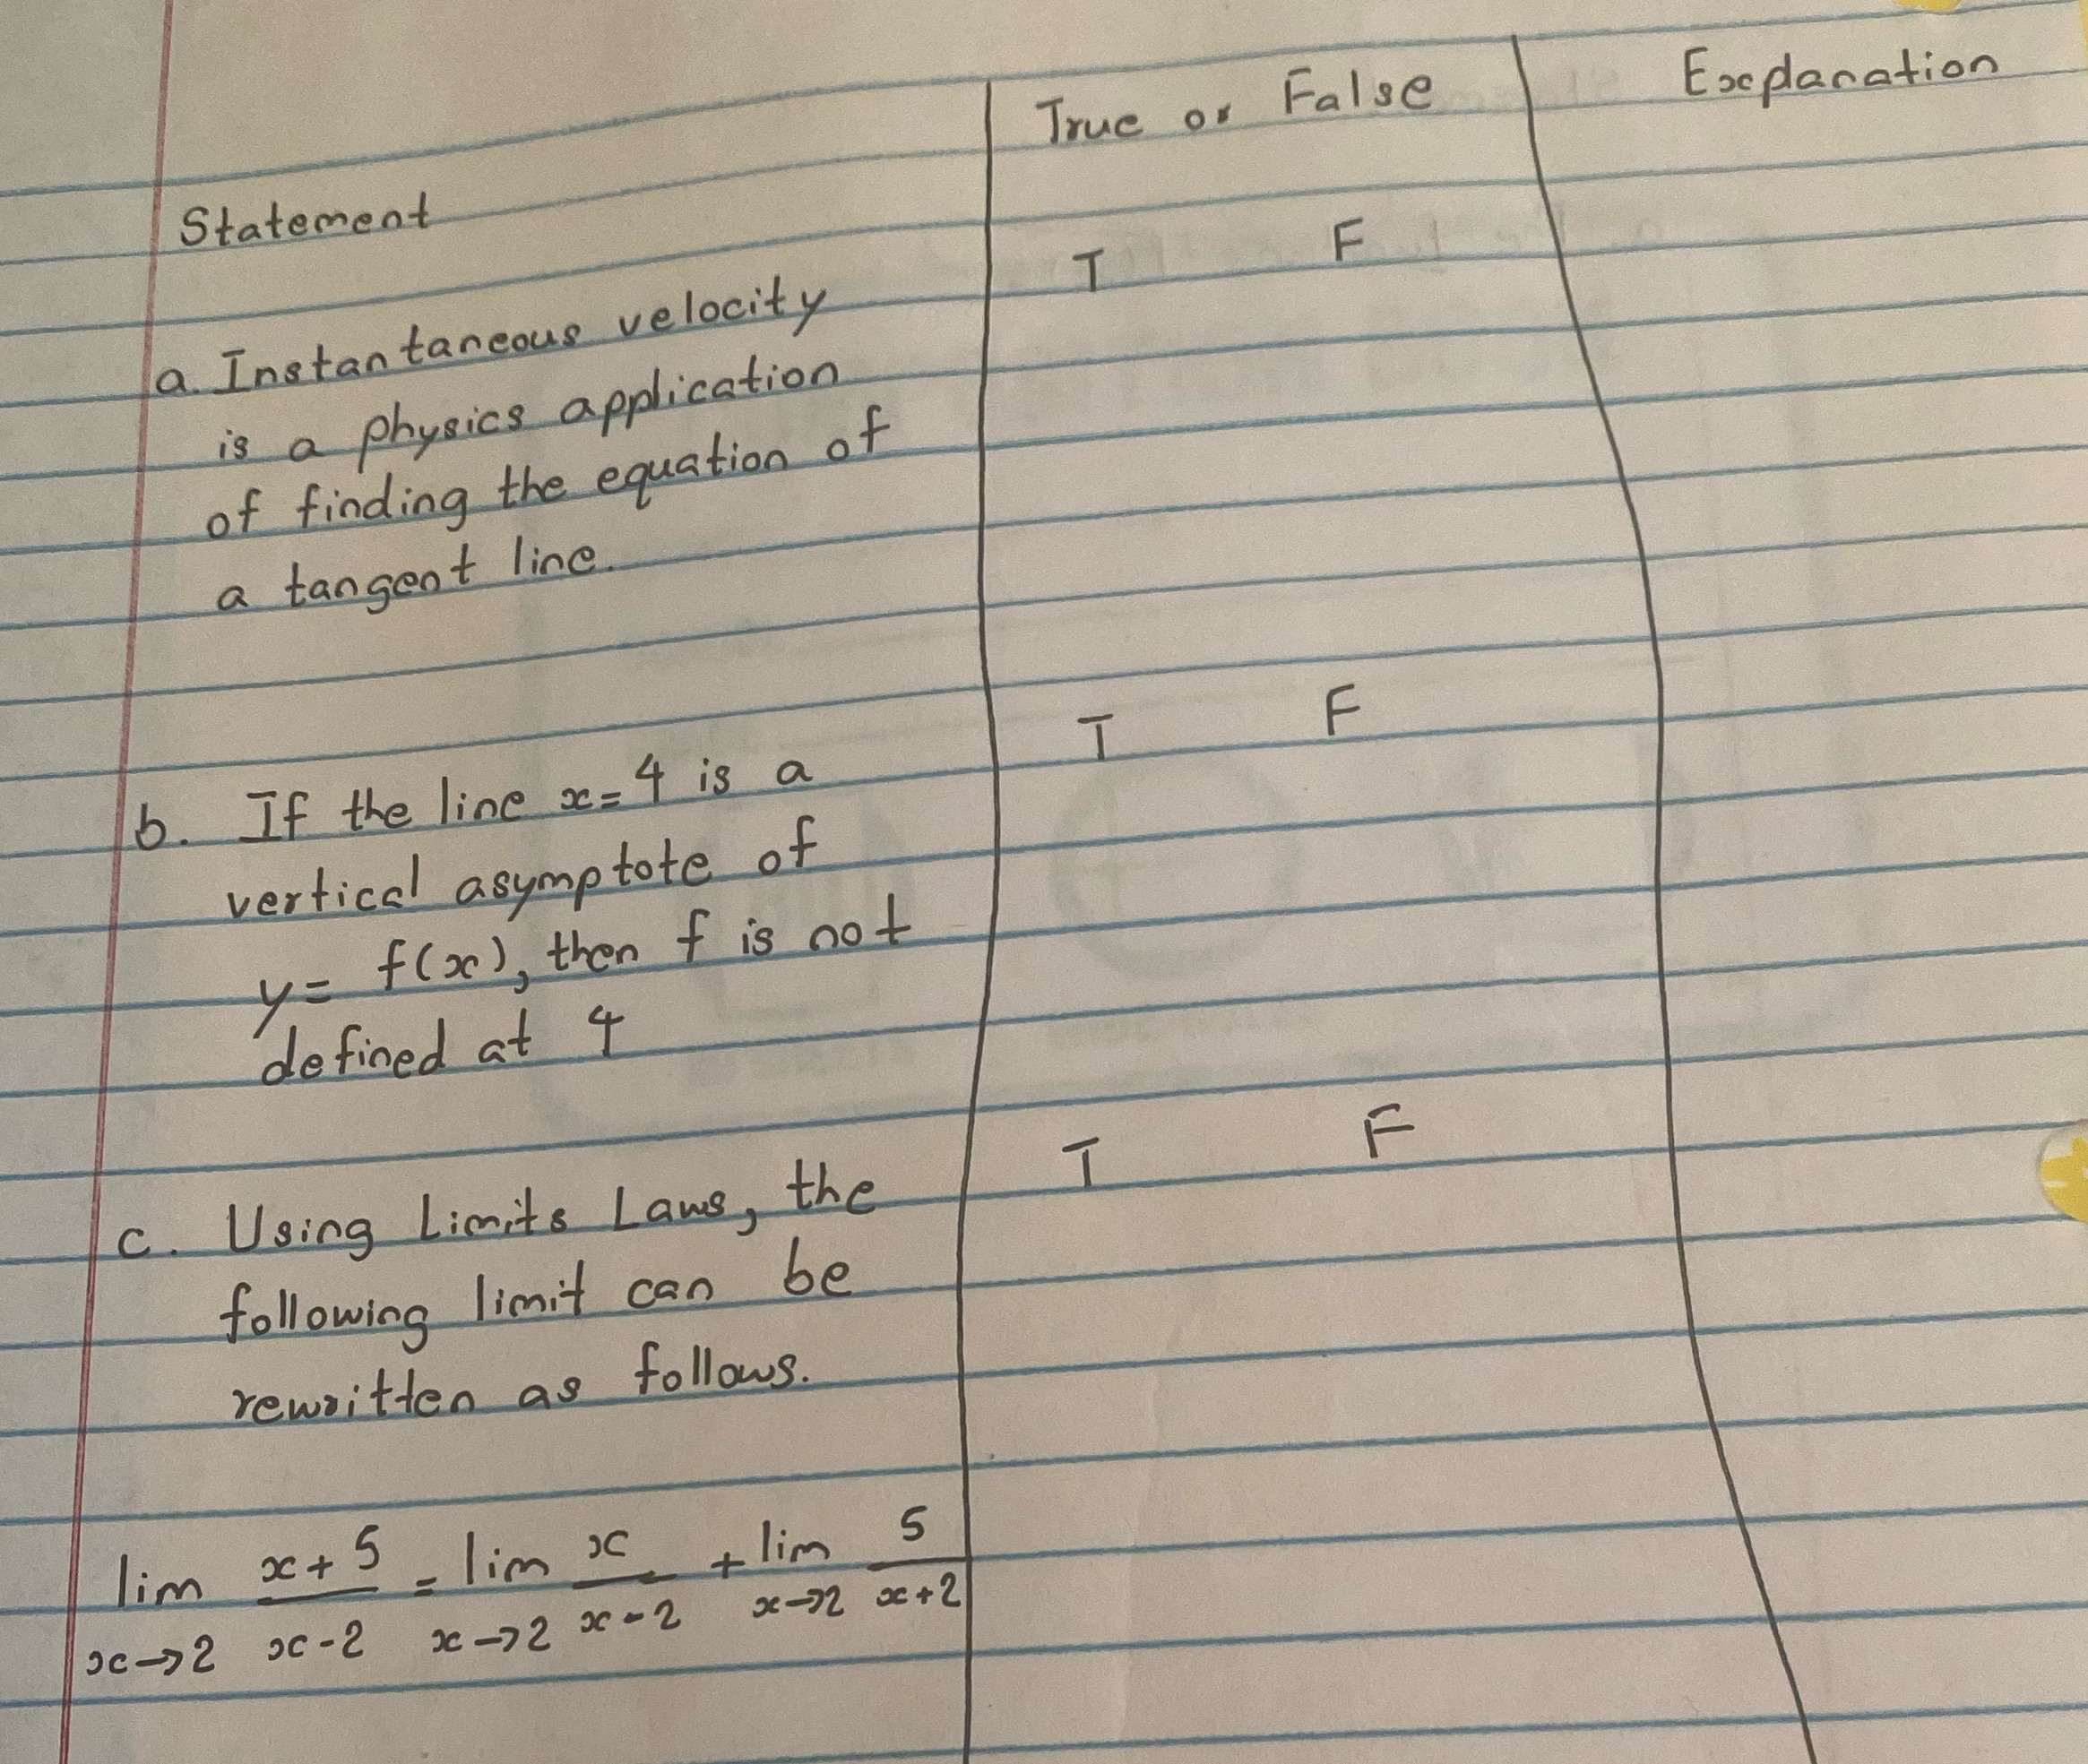 Statement True or False Explanation
a. Instantaneous velocity T F
is a physics application
of finding the equation of
a tangent line.
b. If the line x=4 is a T F
vertical asymptote of
y= f(x), then f is not
defined at 4
c. Using Limits Laws, the T F
following limit can be
rewritten as follows.
lim x→2 (x+5)/(x-2) = lim x→2 x/(x-2) + lim x→2 5/(x+2)